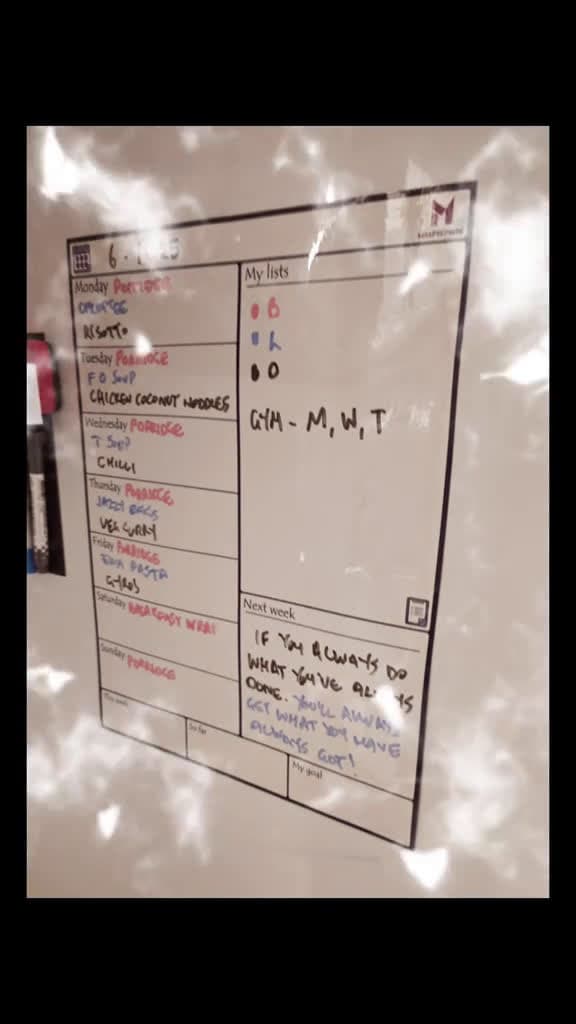 6
Monday PORRIDGE
RISOTTO
Tuesday PORRIDGE
F O SOUP
CHICKEN COCONUT NOODLES
Wednesday PORRIDGE
T SOUP
CHILLI
Thursday PORRIDGE
JAZZY EGGS
VEG CURRY
Friday PORRIDGE
PASTA
GYROS
Saturday BREAKFAST WRAP
Sunday PORRIDGE
This week
So far
My goal
My lists
B
L
D
GYM - M, W, T
Next week
IF YOU ALWAYS DO
WHAT YOU'VE ALWAYS
DONE. YOU'LL ALWAYS
GET WHAT YOU HAVE
ALWAYS GOT!